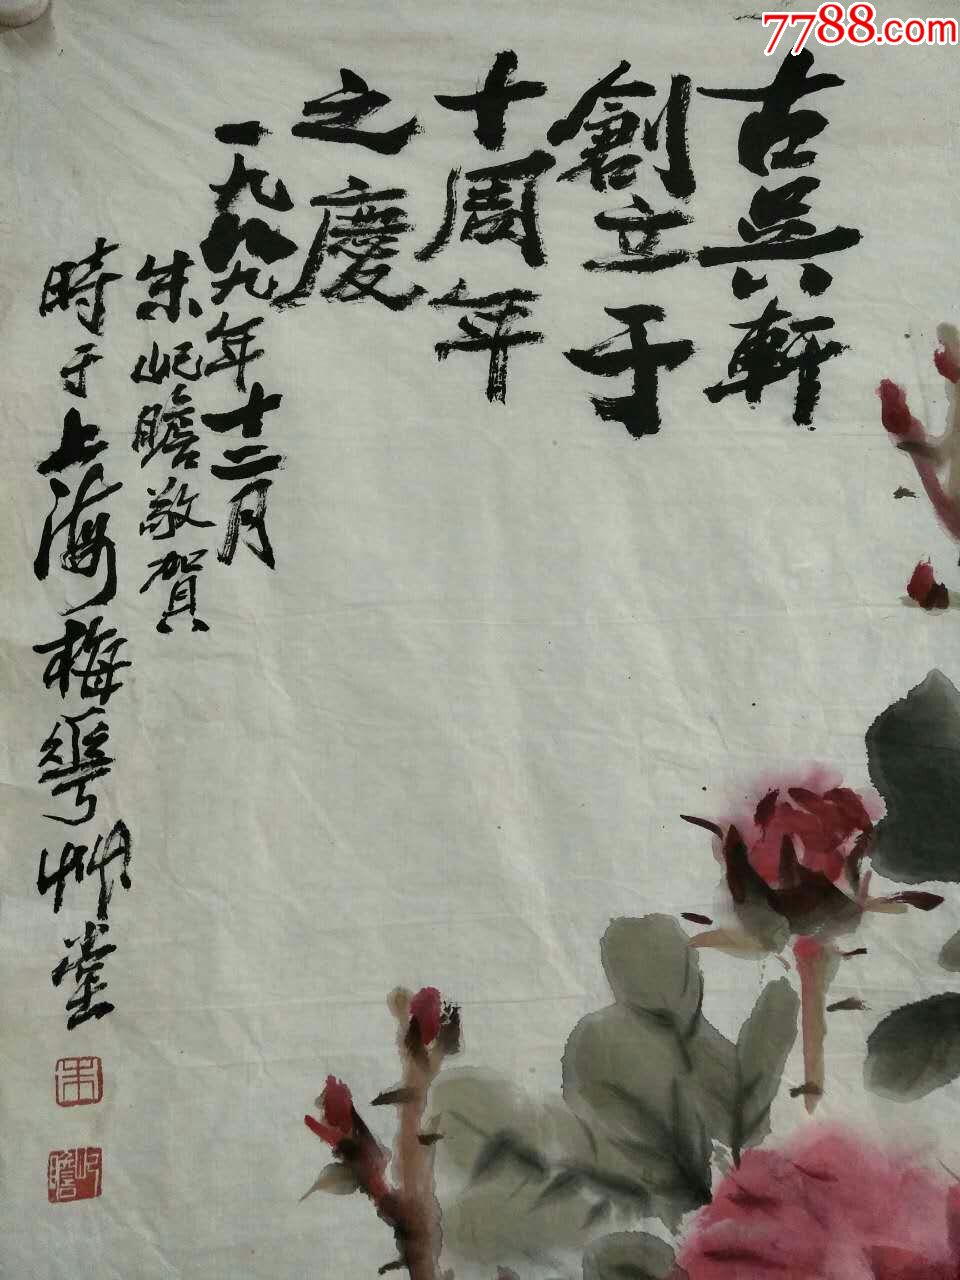 7788.com
古吴軒
創立于
十周年
之慶
一九八九年十二月
朱屺瞻敬賀
時于上海梅華艸堂
朱
屺瞻